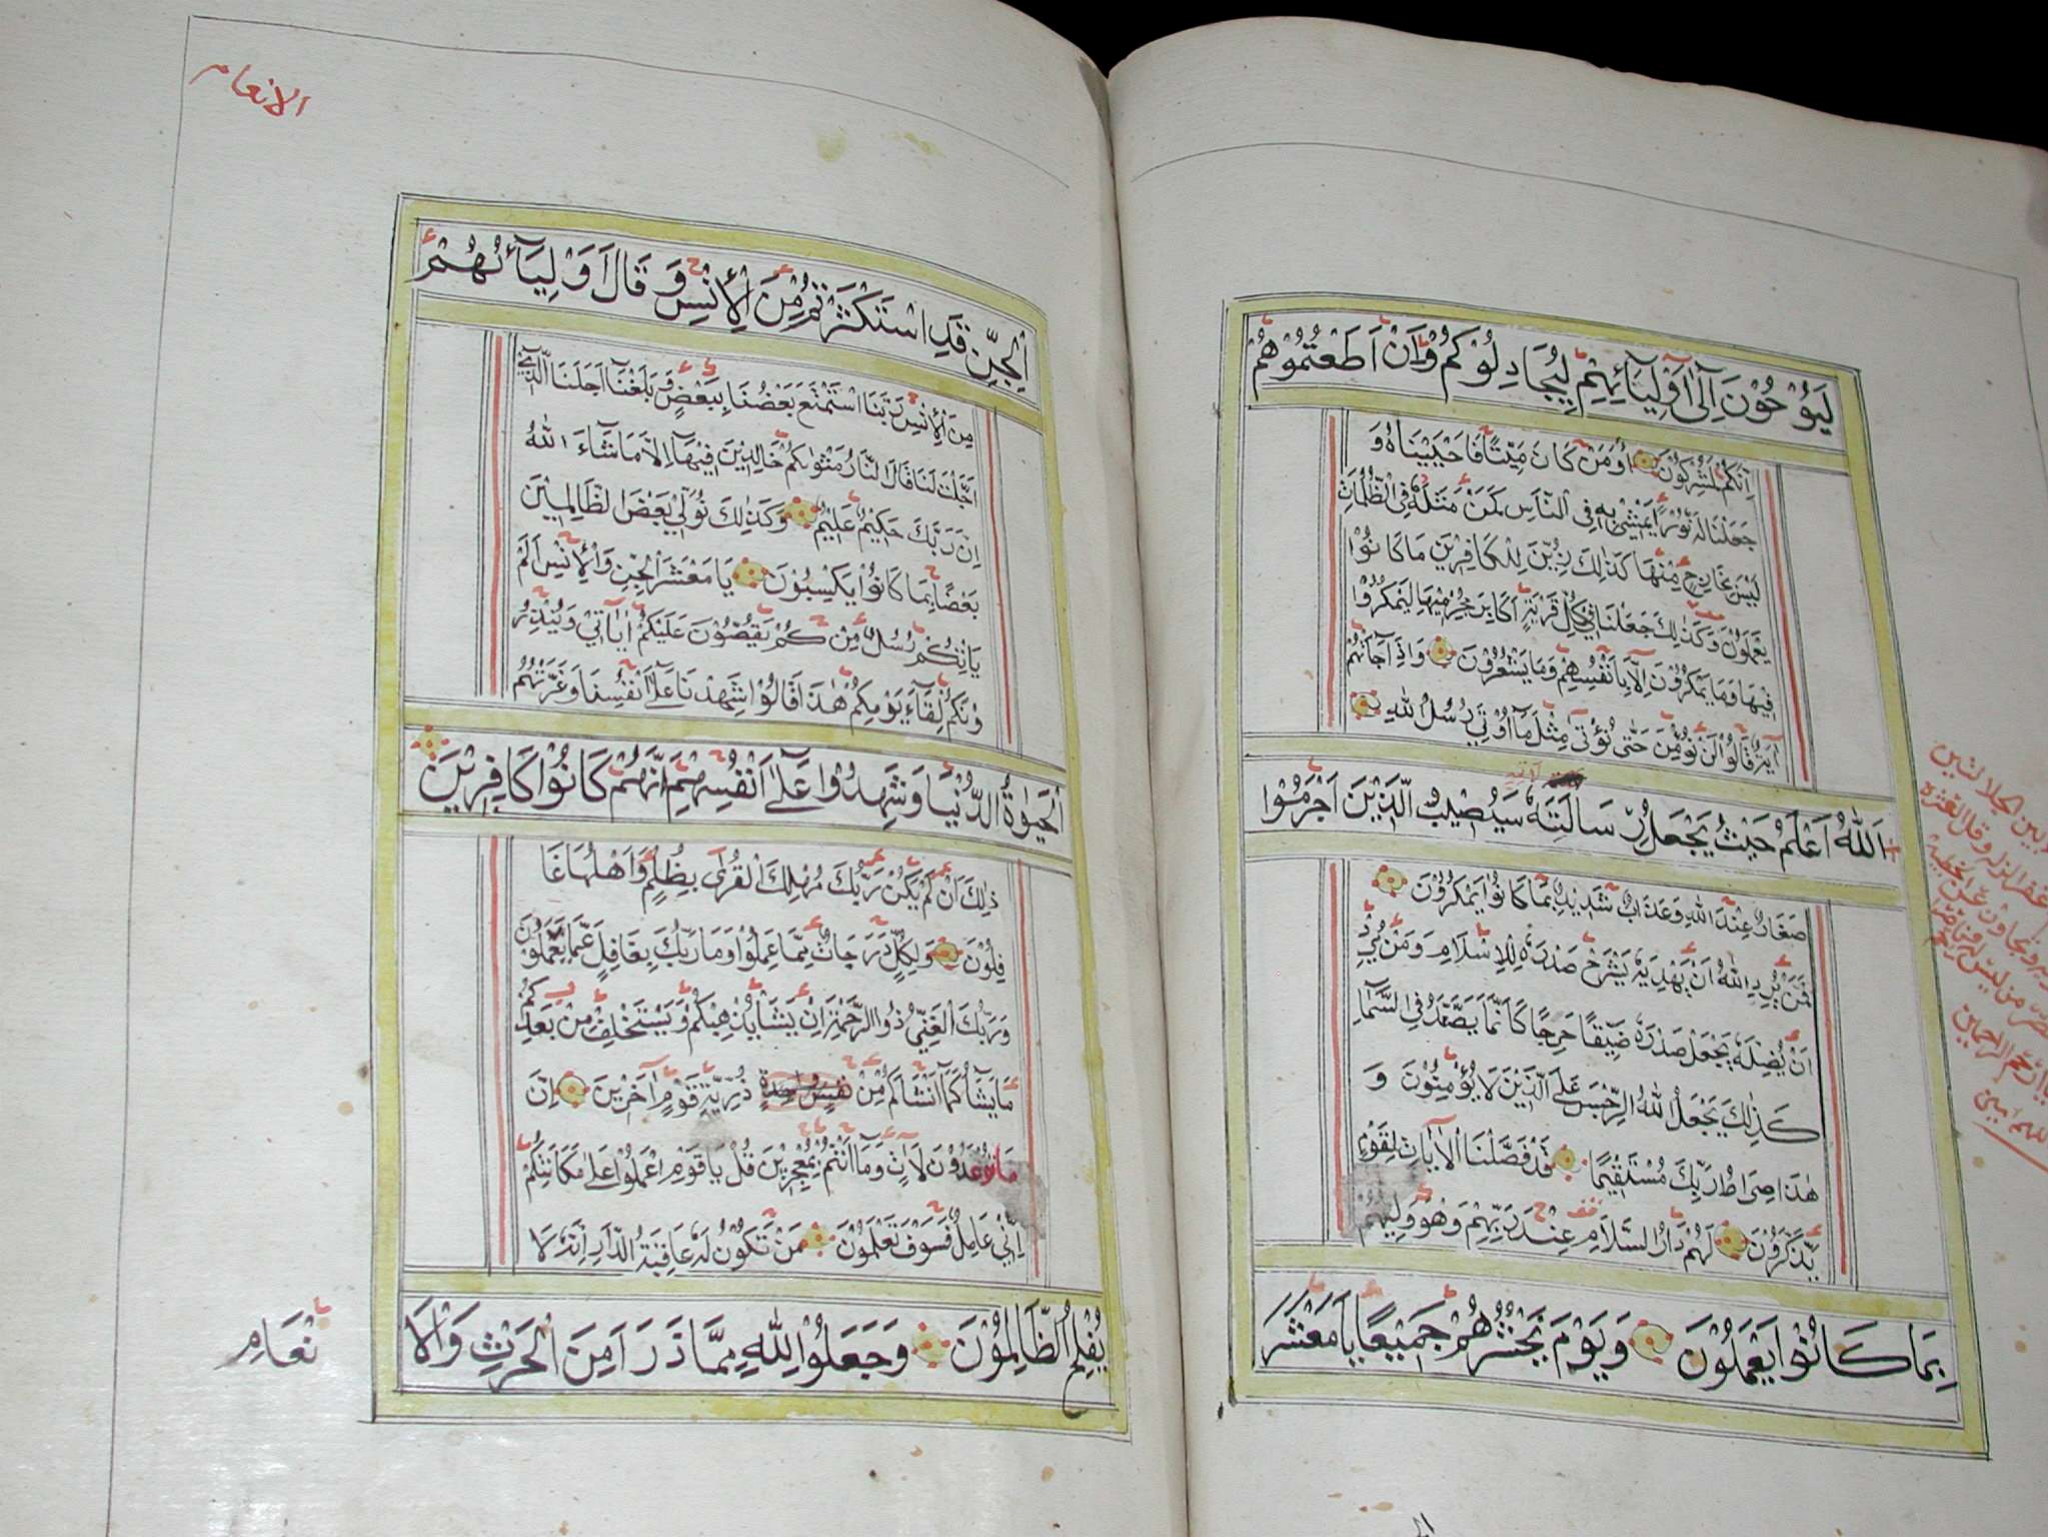 لَيُوْحُوْنَ اِلٰٓى اَوْلِيَآئِهِمْ لِيُجَادِلُوْكُمْ وَاِنْ اَطَعْتُمُوْهُمْ
اِنَّكُمْ لَمُشْرِكُوْنَ اَوَمَنْ كَانَ مَيْتًا فَاَحْيَيْنَاهُ وَ
جَعَلْنَا لَهٗ نُوْرًا يَمْشِيْ بِهٖ فِى النَّاسِ كَمَنْ مَثَلُهٗ فِى الظُّلُمَاتِ
لَيْسَ بِخَارِجٍ مِنْهَا كَذٰلِكَ زُيِّنَ لِلْكَافِرِيْنَ مَا كَانُوْا
يَعْمَلُوْنَ وَكَذٰلِكَ جَعَلْنَا فِيْ كُلِّ قَرْيَةٍ اَكَابِرَ مُجْرِمِيْهَا لِيَمْكُرُوْا
فِيْهَا وَمَا يَمْكُرُوْنَ اِلَّا بِاَنْفُسِهِمْ وَمَا يَشْعُرُوْنَ وَاِذَا جَآئَتْهُمْ
آيَةٌ قَالُوْا لَنْ نُؤْمِنَ حَتّٰى نُؤْتٰى مِثْلَ مَآ اُوْتِيَ رُسُلُ اللّٰهِ
اَللّٰهُ اَعْلَمُ حَيْثُ يَجْعَلُ رِسَالَتَهٗ سَيُصِيْبُ الَّذِيْنَ اَجْرَمُوْا
صَغَارٌ عِنْدَ اللّٰهِ وَعَذَابٌ شَدِيْدٌ بِمَا كَانُوْا يَمْكُرُوْنَ
فَمَنْ يُرِدِ اللّٰهُ اَنْ يَهْدِيَهٗ يَشْرَحْ صَدْرَهٗ لِلْاِسْلَامِ وَمَنْ يُرِدْ
اَنْ يُضِلَّهٗ يَجْعَلْ صَدْرَهٗ ضَيِّقًا حَرَجًا كَاَنَّمَا يَصَّعَّدُ فِى السَّمَآءِ
كَذٰلِكَ يَجْعَلُ اللّٰهُ الرِّجْسَ عَلَى الَّذِيْنَ لَا يُؤْمِنُوْنَ وَ
هٰذَا صِرَاطُ رَبِّكَ مُسْتَقِيْمًا قَدْ فَصَّلْنَا الْاٰيَاتِ لِقَوْمٍ
يَذَّكَّرُوْنَ لَهُمْ دَارُ السَّلَامِ عِنْدَ رَبِّهِمْ وَهُوَ وَلِيُّهُمْ
بِمَا كَانُوْا يَعْمَلُوْنَ وَيَوْمَ يَحْشُرُهُمْ جَمِيْعًا يَا مَعْشَرَ
الانعام
الْجِنِّ قَدِ اسْتَكْثَرْتُمْ مِنَ الْاِنْسِ وَقَالَ اَوْلِيَآئُهُمْ
مِنَ الْاِنْسِ رَبَّنَا اسْتَمْتَعَ بَعْضُنَا بِبَعْضٍ وَبَلَغْنَآ اَجَلَنَا الَّذِيْ
اَجَّلْتَ لَنَا قَالَ النَّارُ مَثْوٰىكُمْ خَالِدِيْنَ فِيْهَآ اِلَّا مَا شَآءَ اللّٰهُ
اِنَّ رَبَّكَ حَكِيْمٌ عَلِيْمٌ وَكَذٰلِكَ نُوَلِّيْ بَعْضَ الظَّالِمِيْنَ
بَعْضًا بِمَا كَانُوْا يَكْسِبُوْنَ يَا مَعْشَرَ الْجِنِّ وَالْاِنْسِ اَلَمْ
يَاْتِكُمْ رُسُلٌ مِنْكُمْ يَقُصُّوْنَ عَلَيْكُمْ اٰيَاتِيْ وَيُنْذِرُ
وْنَكُمْ لِقَآءَ يَوْمِكُمْ هٰذَا قَالُوْا شَهِدْنَا عَلٰٓى اَنْفُسِنَا وَغَرَّتْهُمُ
الْحَيٰوةُ الدُّنْيَا وَشَهِدُوْا عَلٰٓى اَنْفُسِهِمْ اَنَّهُمْ كَانُوْا كَافِرِيْنَ
ذٰلِكَ اَنْ لَمْ يَكُنْ رَبُّكَ مُهْلِكَ الْقُرٰى بِظُلْمٍ وَاَهْلُهَا غَا
فِلُوْنَ وَلِكُلٍّ دَرَجَاتٌ مِمَّا عَمِلُوْا وَمَا رَبُّكَ بِغَافِلٍ عَمَّا يَعْمَلُوْنَ
وَرَبُّكَ الْغَنِيُّ ذُوا الرَّحْمَةِ اِنْ يَشَأْ يُذْهِبْكُمْ وَيَسْتَخْلِفْ مِنْ بَعْدِكُمْ
مَا يَشَآءُ كَمَآ اَنْشَاَكُمْ مِنْ ذُرِّيَّةِ قَوْمٍ اٰخَرِيْنَ اِنَّ
مَا تُوْعَدُوْنَ لَاٰتٍ وَمَآ اَنْتُمْ بِمُعْجِزِيْنَ قُلْ يَا قَوْمِ اعْمَلُوْا عَلٰى مَكَانَتِكُمْ
اِنِّيْ عَامِلٌ فَسَوْفَ تَعْلَمُوْنَ مَنْ تَكُوْنُ لَهٗ عَاقِبَةُ الدَّارِ اِنَّهٗ لَا
يُفْلِحُ الظَّالِمُوْنَ وَجَعَلُوْا لِلّٰهِ مِمَّا ذَرَاَ مِنَ الْحَرْثِ وَالْاَ
نْعَامِ